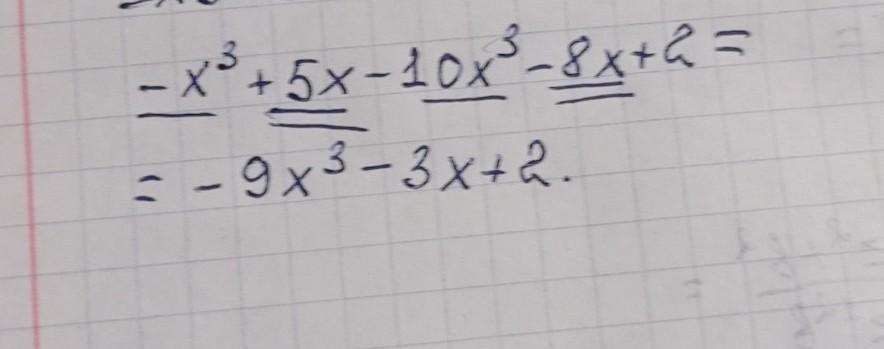 -x³+5x-10x³-8x+2=
=-9x³-3x+2.